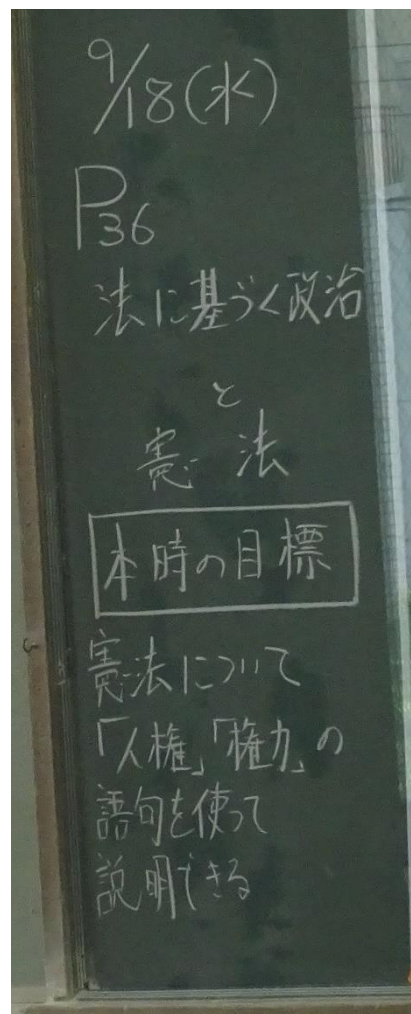 9/18(水)
P36
法に基づく政治
と
憲法
本時の目標
憲法について
「人権」「権力」の
語句を使って
説明できる